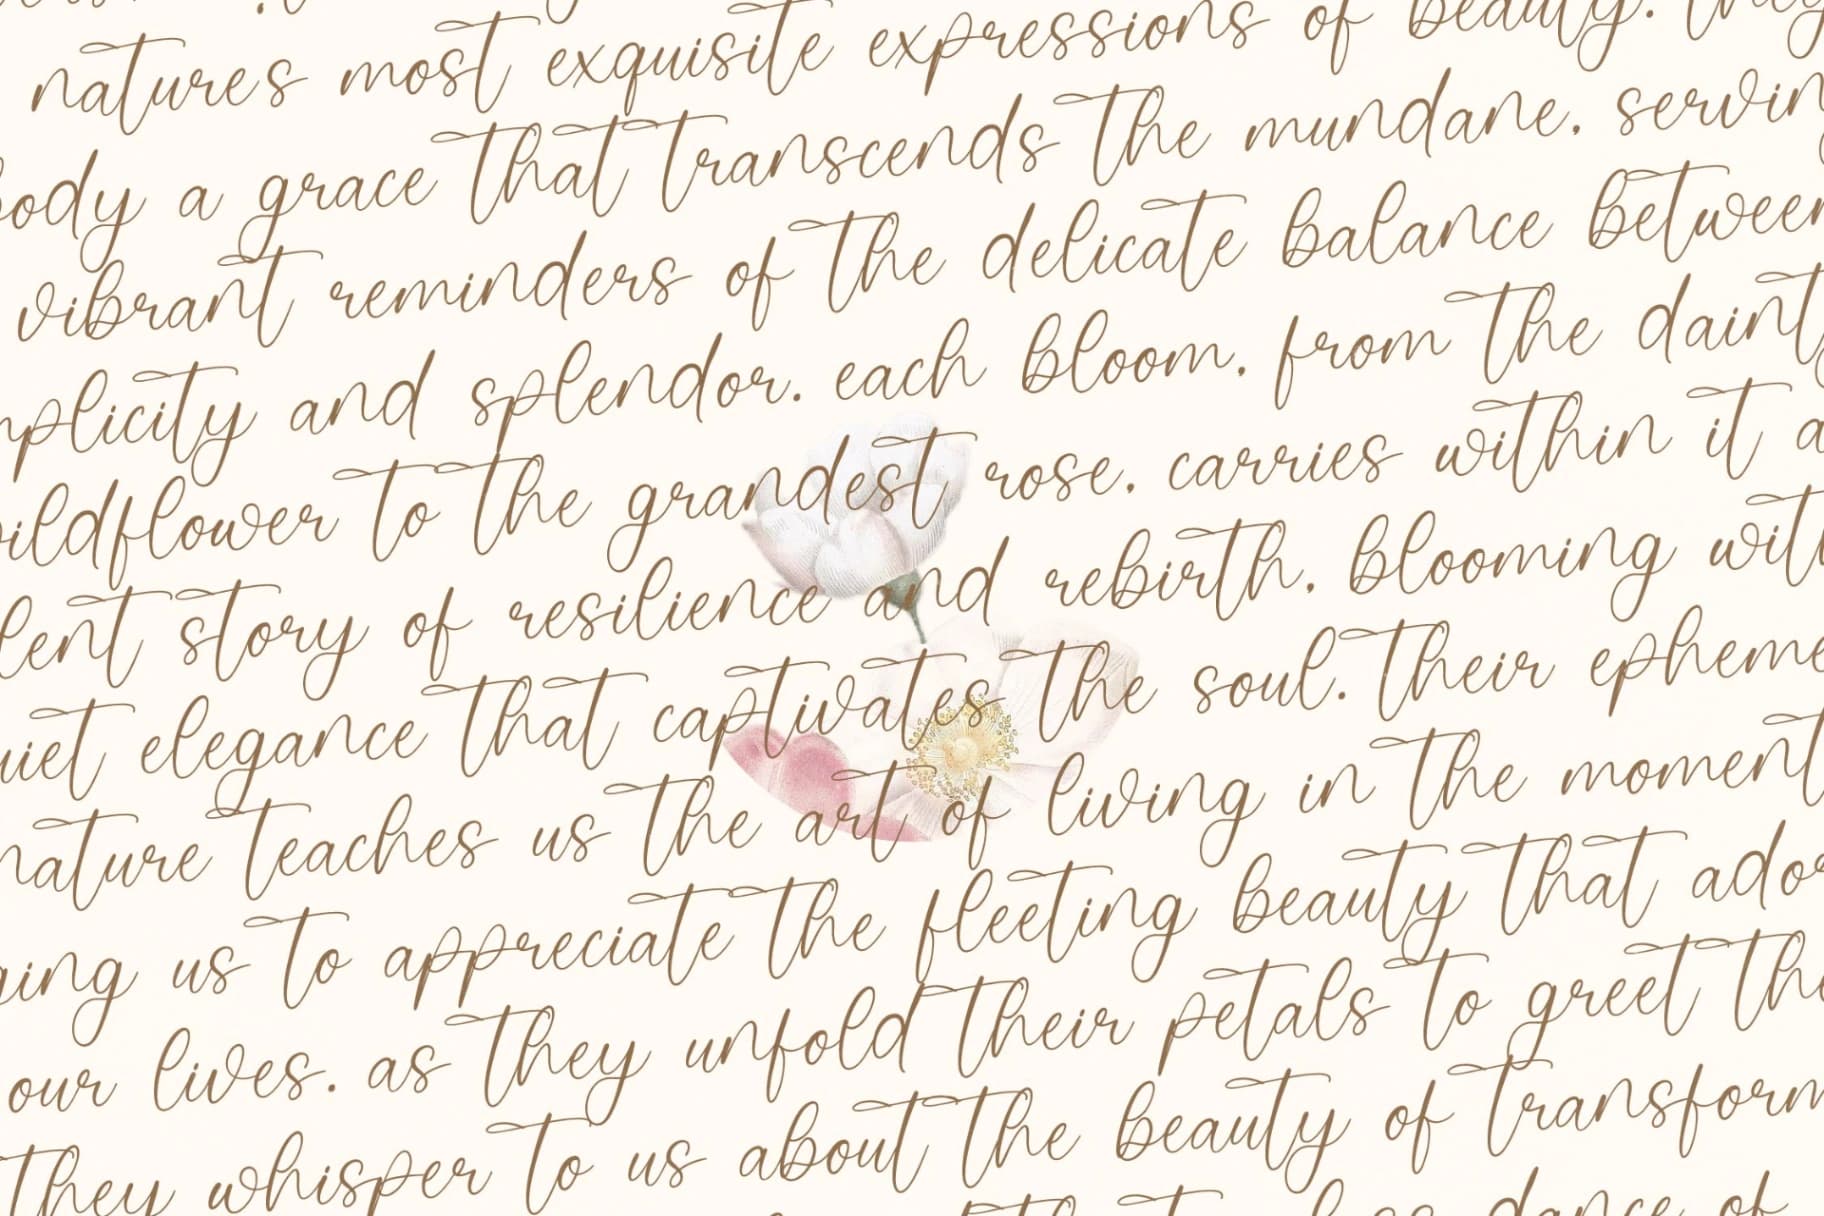 nature's most exquisite expressions of beauty. they
body a grace that transcends the mundane. serving
vibrant reminders of the delicate balance between
mplicity and splendor. each bloom, from the dainty
wildflower to the grandest rose, carries within it a
lent story of resilience and rebirth, blooming with
uiet elegance that captivates the soul. their epheme
nature teaches us the art of living in the moment
ging us to appreciate the fleeting beauty that ador
our lives. as they unfold their petals to greet the
they whisper to us about the beauty of transform
dance of